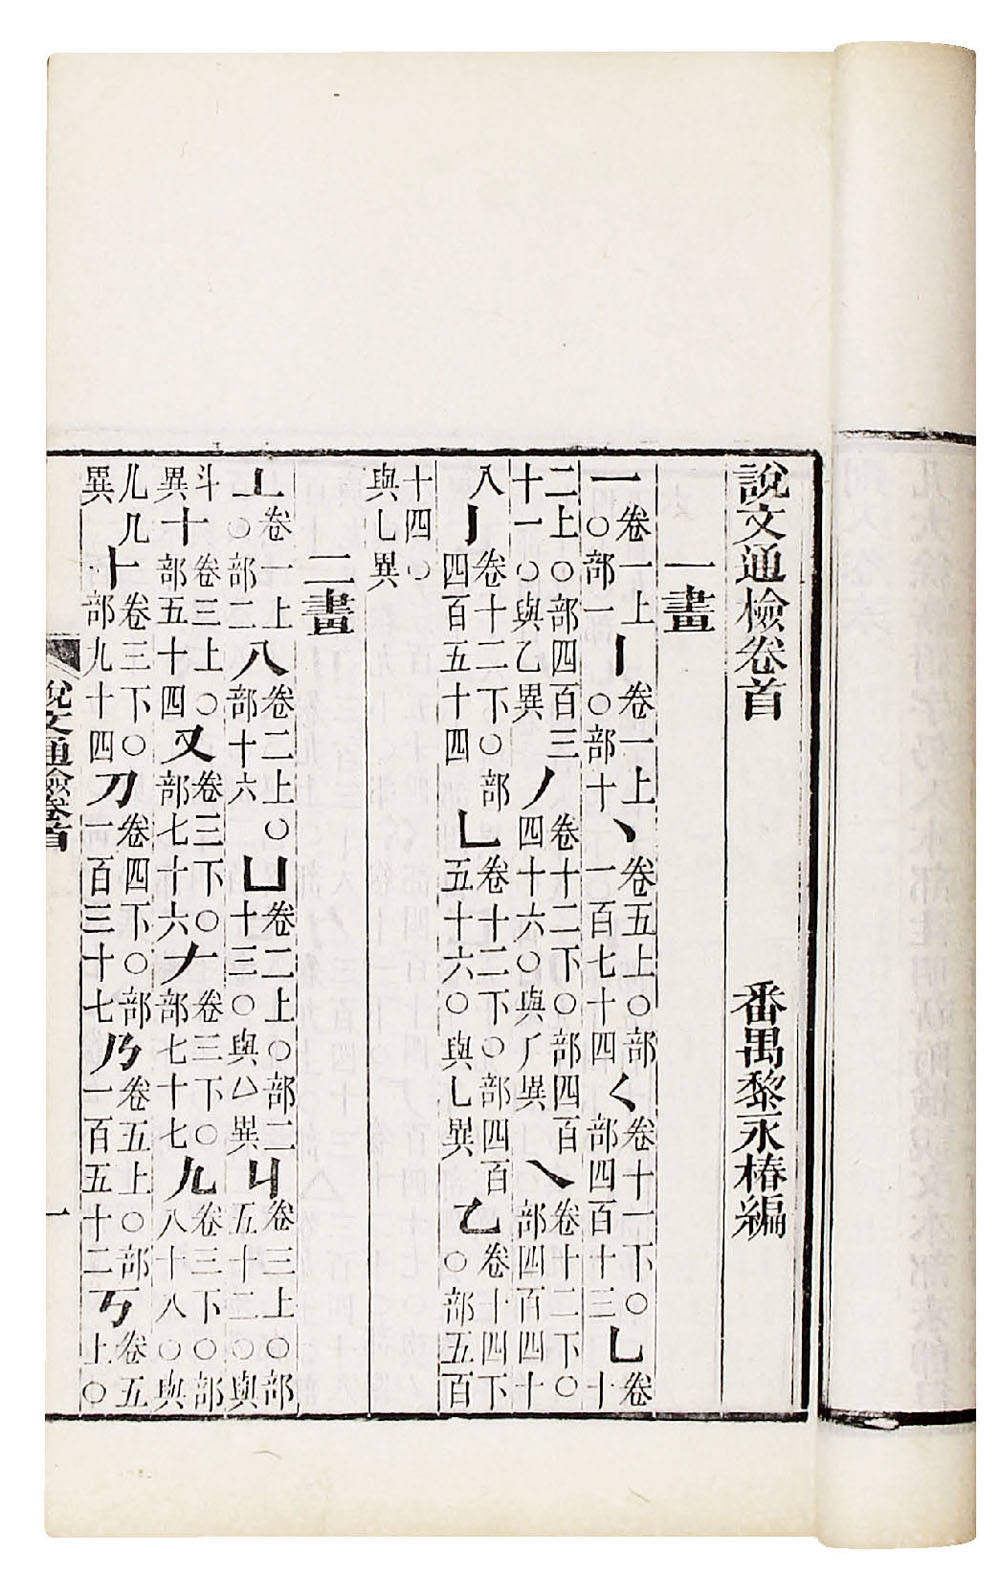 說文通檢卷首 番禺黎永椿編
一畫
一卷一上○部一丨卷一上○部十丶卷五上○部一百七十四く卷十一下○部四百十三乚卷十
二上○部四百三十一○與乙異丿卷十二下○部四百四十六○與𠂆異乀卷十二下○部四百四十
八亅卷十二下○部四百五十四乚卷十二下○部四百五十六○與乚異乙卷十四下○部五百
十四○與乚異
二畫
丄卷一上○部二八卷二上○部十六凵卷二上○部二十三○與𠙴異丩卷三上○部五十二○與
斗異十卷三上○部五十四又卷三下○部七十六𠂇卷三下○部七十七𠘧卷三下○部八十八○與
儿几異卜卷三下○部九十四刀卷四下○部一百三十七乃卷五上○部一百五十二丂卷五上○
說文通檢卷首 一